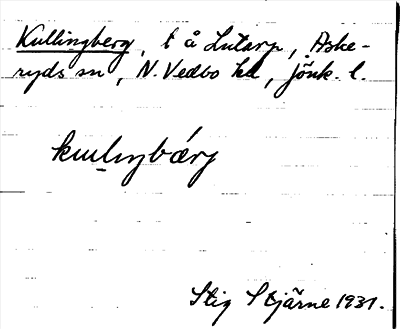 Kullingberg, t å Lutarp, Aske-
ryds sn, N. Vedbo hd, Jönk. l.
kuliŋbærj
Stig Stjärne 1931.